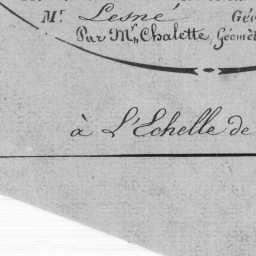 Mr. Lesné Géo
Par Mr. Chalette Géomèt
à L'Echelle de